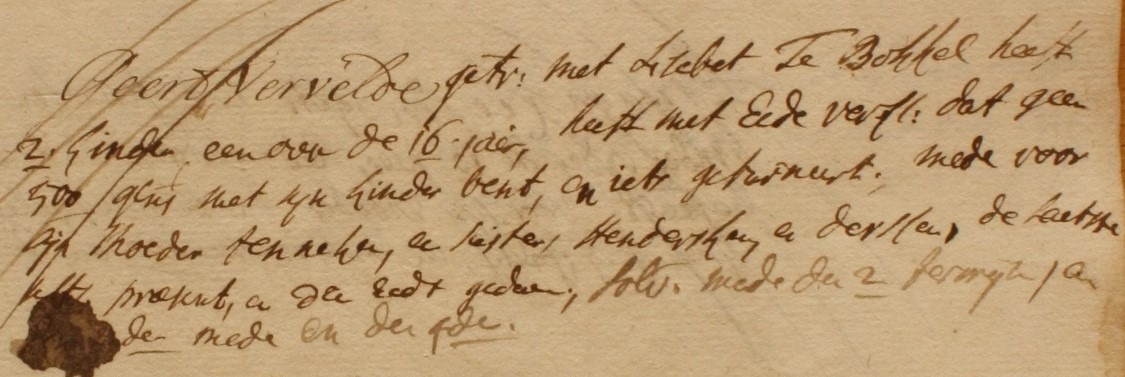 Geert Vervelde getr: met Lisebet Te Bokkel heeft
2 kinder, een over de 16 jaer, heeft met Eede verkl: dat geen
500 guls met sijn kinder bent, en iets gefurneert; mede voor
sijn Moeder Jenneken, en susters Hendersken, en Dersken, de laetste
present, en den Eedt gedaen; solv. mede den 2 termijn, en
den mede en den 4de.